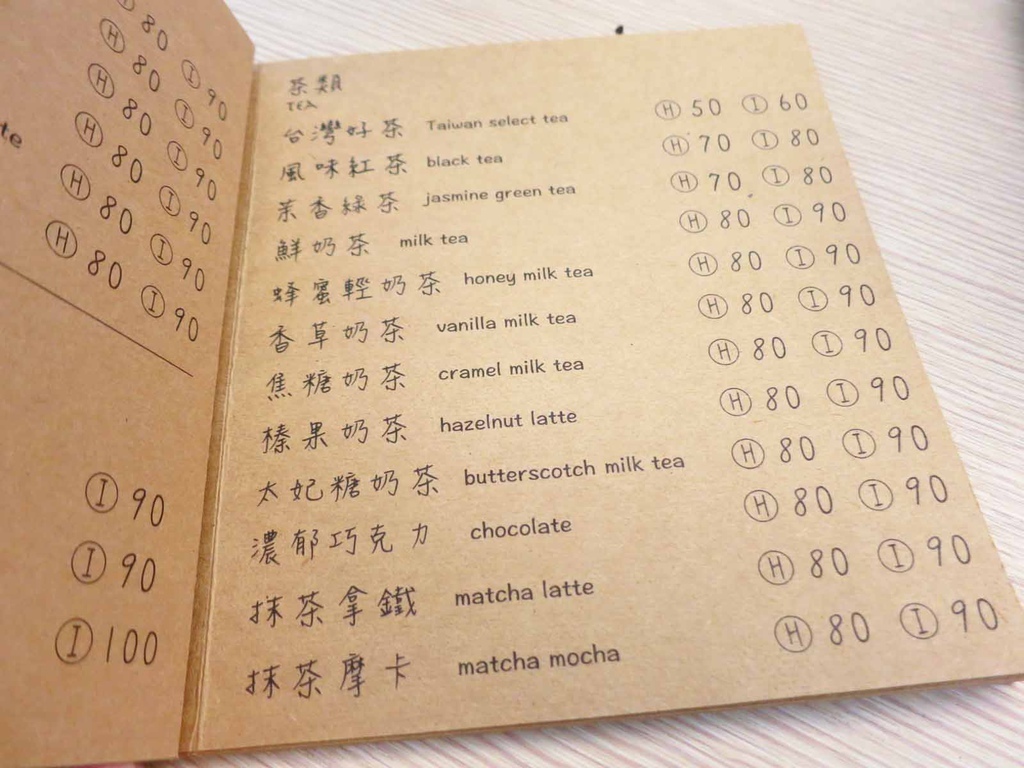 te
Ⓗ 80 Ⓘ 90
Ⓗ 80 Ⓘ 90
Ⓗ 80 Ⓘ 90
Ⓗ 80 Ⓘ 90
Ⓗ 80 Ⓘ 90
Ⓗ 80 Ⓘ 90
Ⓘ 90
Ⓘ 90
Ⓘ 100
茶類
TEA
台灣好茶 Taiwan select tea Ⓗ 50 Ⓘ 60
風味紅茶 black tea Ⓗ 70 Ⓘ 80
茉香綠茶 jasmine green tea Ⓗ 70 Ⓘ 80
鮮奶茶 milk tea Ⓗ 80 Ⓘ 90
蜂蜜輕奶茶 honey milk tea Ⓗ 80 Ⓘ 90
香草奶茶 vanilla milk tea Ⓗ 80 Ⓘ 90
焦糖奶茶 cramel milk tea Ⓗ 80 Ⓘ 90
榛果奶茶 hazelnut latte Ⓗ 80 Ⓘ 90
太妃糖奶茶 butterscotch milk tea Ⓗ 80 Ⓘ 90
濃郁巧克力 chocolate Ⓗ 80 Ⓘ 90
抹茶拿鐵 matcha latte Ⓗ 80 Ⓘ 90
抹茶摩卡 matcha mocha Ⓗ 80 Ⓘ 90